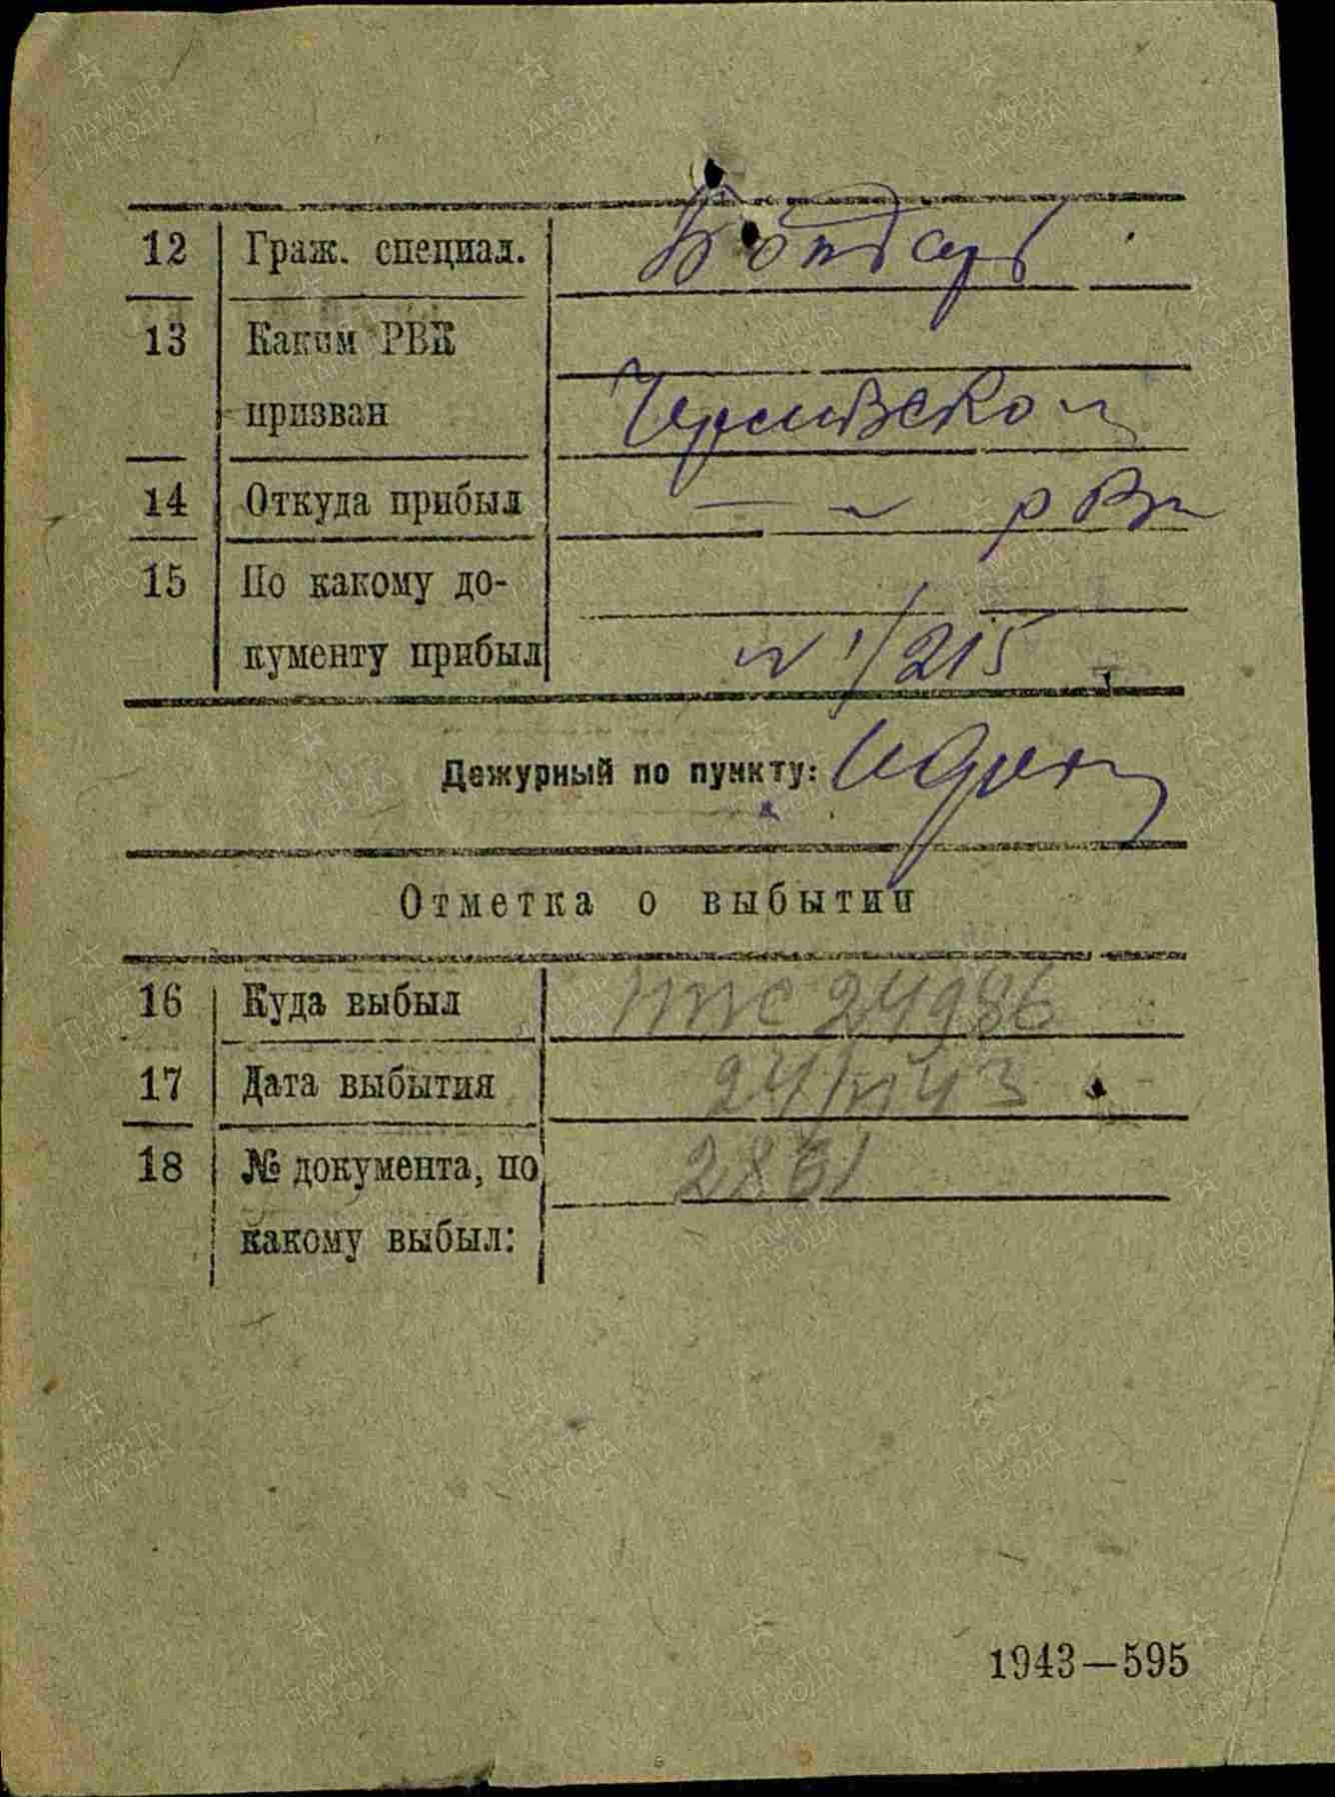 12 Граж. специал. Бондарь
13 Каким РВК
призван
14 Откуда прибыл — " — РВК
15 По какому до-
кументу прибыл № 1/215
Дежурный по пункту:
Отметка о выбытии
16 Куда выбыл 24986
17 Дата выбытия 43
18 № документа, по 2861
какому выбыл:
1943—595
ПАМЯТЬ НАРОДА